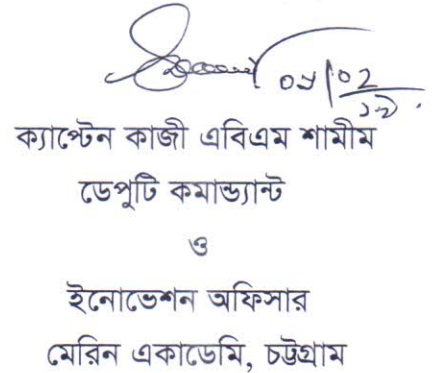 ০৫/০২
১৯.
ক্যাপ্টেন কাজী এবিএম শামীম
ডেপুটি কমান্ড্যান্ট
ও
ইনোভেশন অফিসার
মেরিন একাডেমি, চট্টগ্রাম